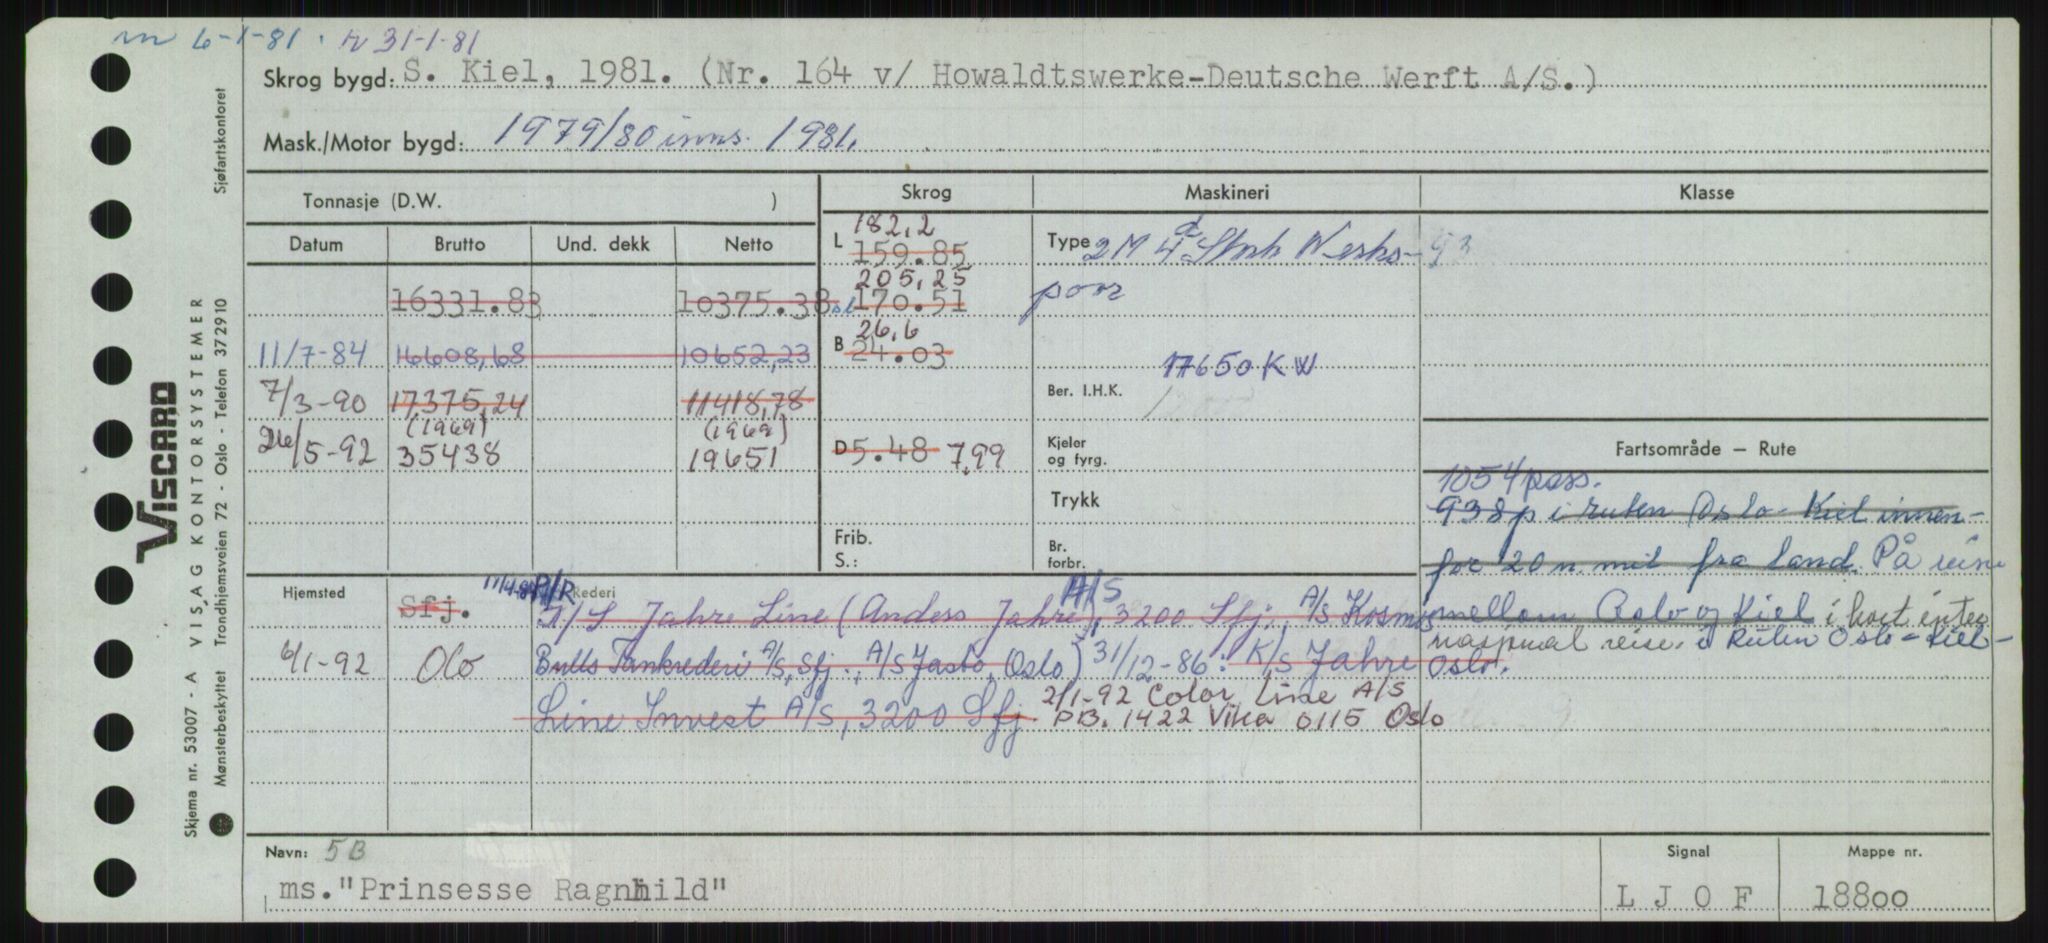 m 6-1-81. r 31-1-81
Skrog bygd: S. Kiel, 1981. (Nr. 164 v/ Howaldtswerke-Deutsche Werft A/S.)
Mask./Motor bygd: 1979/80 inns. 1981.
Tonnasje (D.W. )
Skrog
Maskineri
Klasse
Datum
Brutto
Und. dekk
Netto
16331.83 10375.38
11/7-84 16608,68 10652,23
7/3-90 17375,24 11418,78
(1969) (1969)
26/5-92 35438 19651
182,2
L 159.85
205,25
170.51
26,6
B 24.03
D 5.48 7,99
Frib.
S.:
Type 2M 4 Stork Werks-
poor
17650 KW
Ber. I.H.K.
Kjeler
og fyrg.
Trykk
Br.
forbr.
Fartsområde – Rute
1054 pass.
938 p i ruten Oslo-Kiel innen-
for 20 n. mil fra land. På reise
mellom Oslo og Kiel i kort inter
nasjonal reise. i Ruten Oslo-Kiel-
Oslo.
Hjemsted
Rederi
Sfj. P/R A/S
I/S Jahre Line (Anders Jahre, 3200 Sfj., A/S Kosmos,
6/1-92 Olo Bulls Tankrederi A/S, Sfj., A/S Jasbo, Oslo) 31/12-86: K/S Jahre
Line Invest A/S, 3200 Sfj. 2/1-92 Color Line A/S
P.B. 1422 Vika 0115 Oslo
Navn: 5B
ms. "Prinsesse Ragnhild"
Signal
L J O F
Mappe nr.
18800
VISCARD
Skjema nr. 53007 - A VISAG KONTORSYSTEMER Sjøfartskontoret
Mønsterbeskyttet Trondhjemsveien 72 - Oslo - Telefon 372910